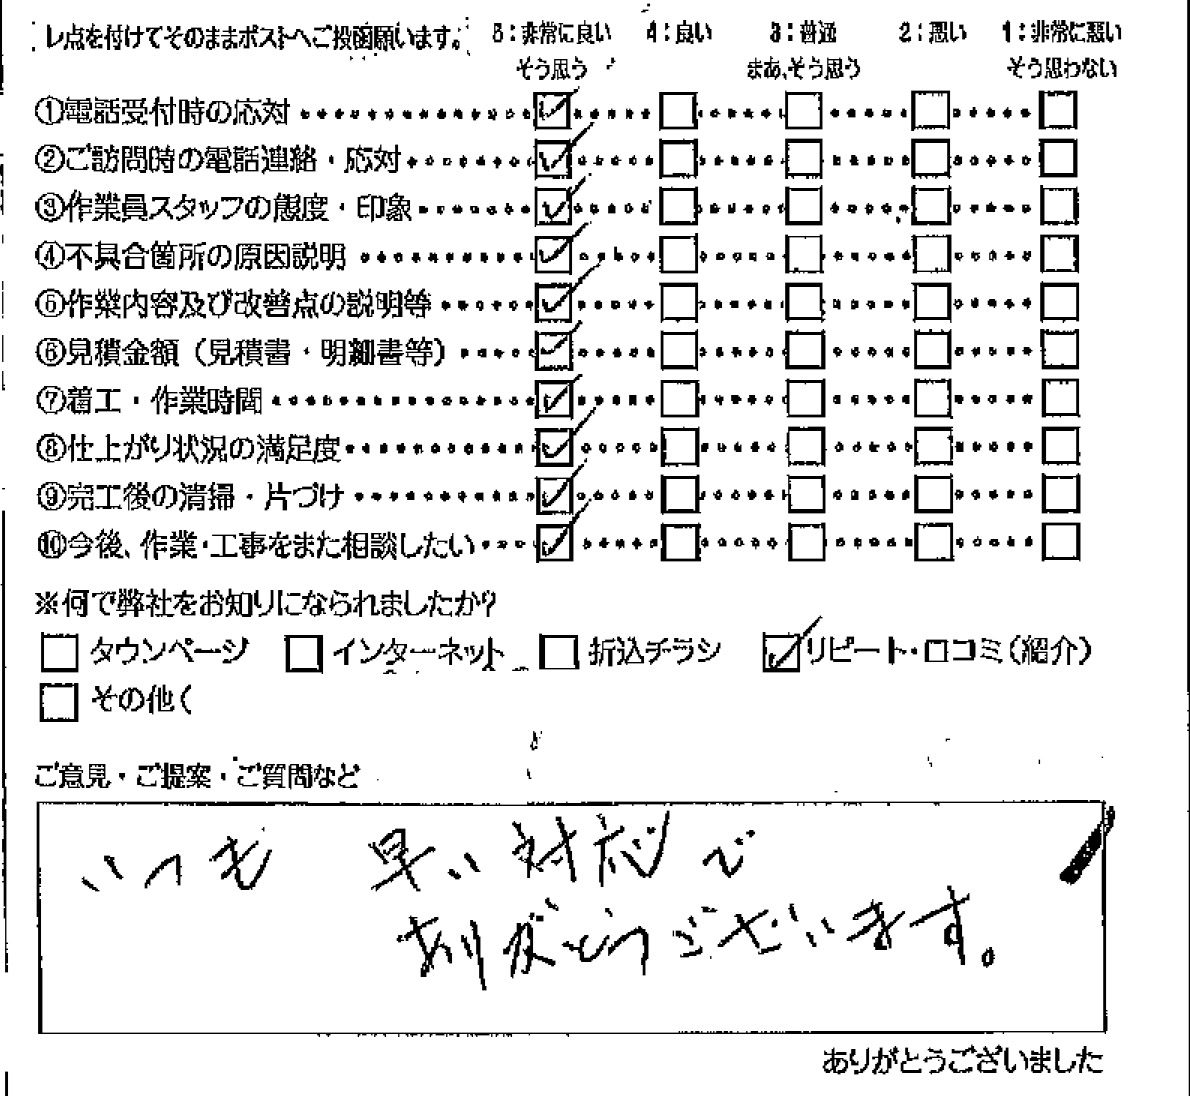 レ点を付けてそのままポストへご投函願います。 5：非常に良い 4：良い 3：普通 2：悪い 1：非常に悪い
そう思う まあ、そう思う そう思わない
①電話受付時の応対
②ご訪問時の電話連絡・応対
③作業員スタッフの態度・印象
④不具合箇所の原因説明
⑤作業内容及び改善点の説明等
⑥見積金額（見積書・明細書等）
⑦着工・作業時間
⑧仕上がり状況の満足度
⑨完工後の清掃・片づけ
⑩今後、作業・工事をまた相談したい
※何で弊社をお知りになられましたか?
タウンページ インターネット 折込チラシ リピート・口コミ(紹介)
その他(
ご意見・ご提案・ご質問など
いつも 早い対応で
ありがとうございます。
ありがとうございました